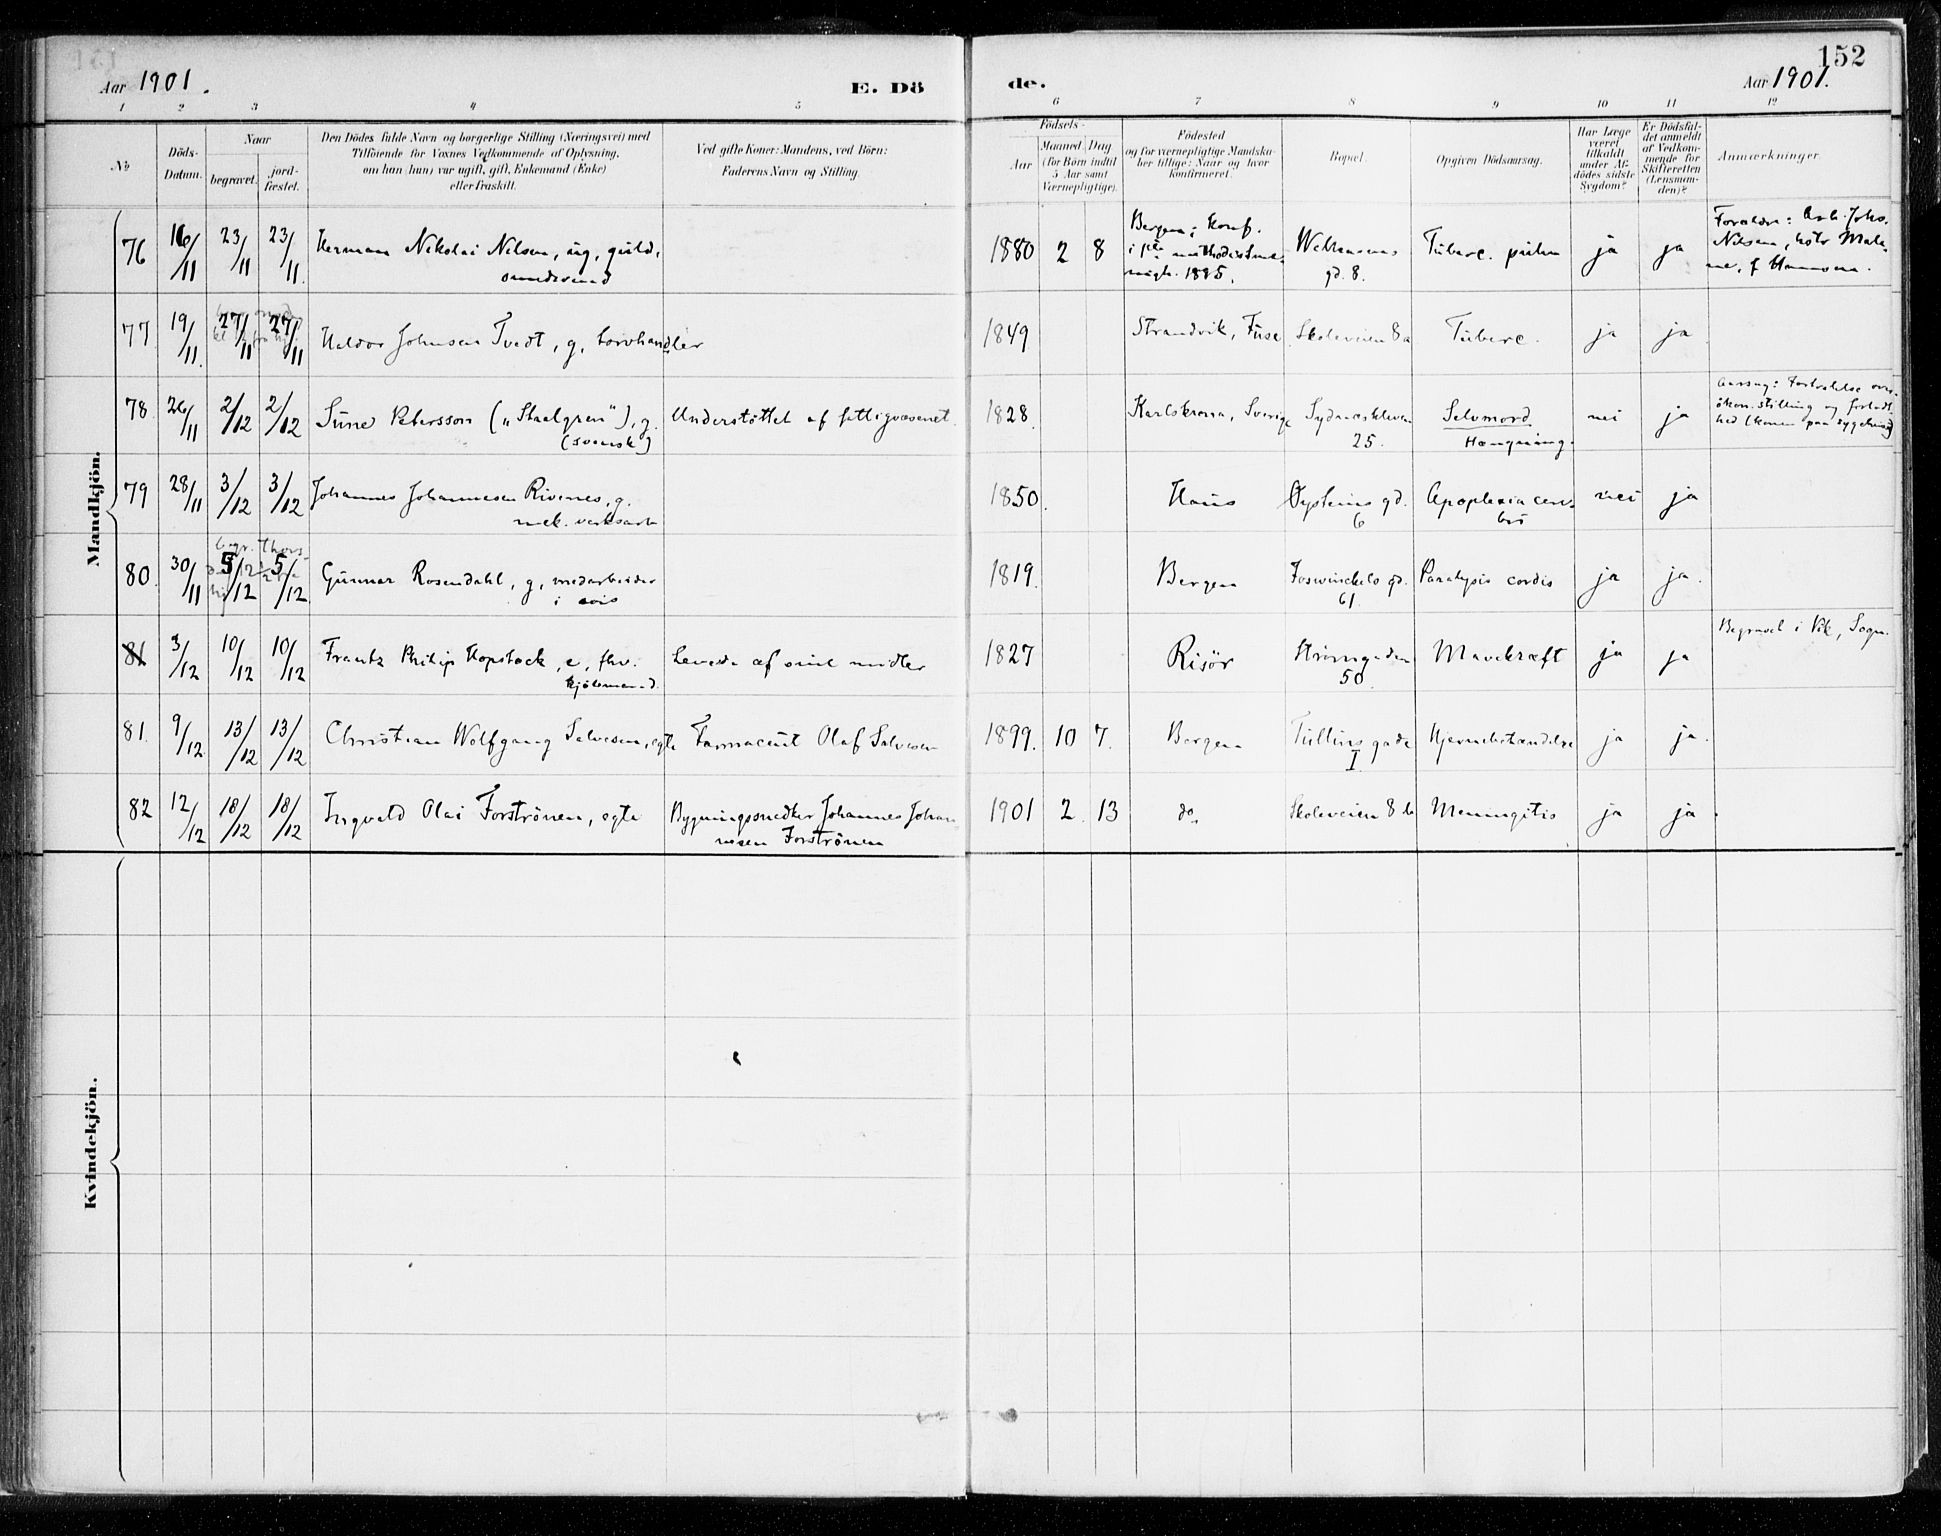 152
Aar 1901.
E. Dö
de.
Aar 1901.
1 2 3 4 5 6 7 8 9 10 11 12
№
Döds-Datum.
Naar
begravet.
jord-fæstet.
Den Dödes fulde Navn og borgerlige Stilling (Næringsvei) med
Tilföiende for Voxnes Vedkommende af Oplysning,
om han (hun) var ugift, gift, Enkemand (Enke)
eller fraskilt.
Ved gifte Koner: Mandens, ved Börn:
Faderens Navn og Stilling.
Födsels-
Aar
Maaned Dag
(for Börn indtil
5 Aar samt
Værnepligtige).
Födested
og for værnepligtige Mandska-
ber tillige: Naar og hvor
konfirmeret.
Bopæl.
Opgiven Dödsaarsag.
Har Læge
været
tilkaldt
under Af-
dödes sidste
Sygdom?
Er Dödsfal-
det anmeldt
af Vedkom-
mende for
Skifteretten
(Lensman-
den)?
Anmærkninger.
Mandkjön.
76 16/11 23/11 23/11 Herman Nikolai Nilsen, ug, guld-
smedsvend
1880 2 8 Bergen; konf.
i 1885.
gd. 8. Tuberc. pulm ja ja
Forældre: Arb. Johs.
Nilsen,
77 19/11 27/11 27/11 Haldor Johnsen Tvedt, g, torvhandler 1849 Strandvik, Fuse Skoleveien 8a Tuberc. ja ja
78 26/11 2/12 2/12 Sune Petersson („Staalgren"), g.
(svensk)
Understöttet af fattigvæsenet. 1828. Karlskrona, Sverige Sydnæskleven
25.
Selvmord
Hængning.
nei ja
79 28/11 3/12 3/12 Johannes Johannesen Rivenes, g.
mek. verksarb
1850. Haus Øysteins gd.
6
Apoplexia cere-
bri
nei ja
80. 30/11 5/12 5/12 Gunnar Rosendahl, g, medarbeider
i avis
1819. Bergen Foswinckels gd.
61.
Paralysis cordis ja ja.
81 3/12 10/12 10/12 Frantz Philip Hopstock, e, fhv.
kjöbmand.
Levede af sine midler 1827 Risör Strömgaden
50.
Mavekræft ja ja Begravet i Vik, Sogn.
81. 9/12 13/12 13/12 Christian Wolfgang Salvesen, egte Farmaceut Olaf Salvesen 1899. 10 7. Bergen Tullins gade
I.
Hjernebetændelse ja ja.
82 12/12 18/12 18/12 Ingvald Olai Forströnen, egte Bygningssnedker Johannes Johan-
nesen Forströnen
1901 2 13 do. Skoleveien 8 b Meningitis ja ja.
Kvindekjön.